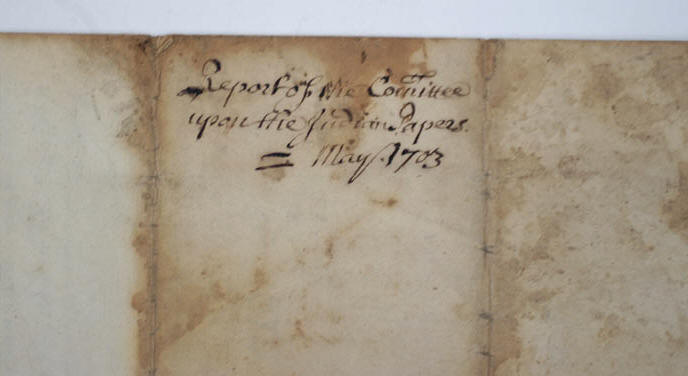 Report of the Com̃ittee
upon the Indian Papers.
= May. 1703